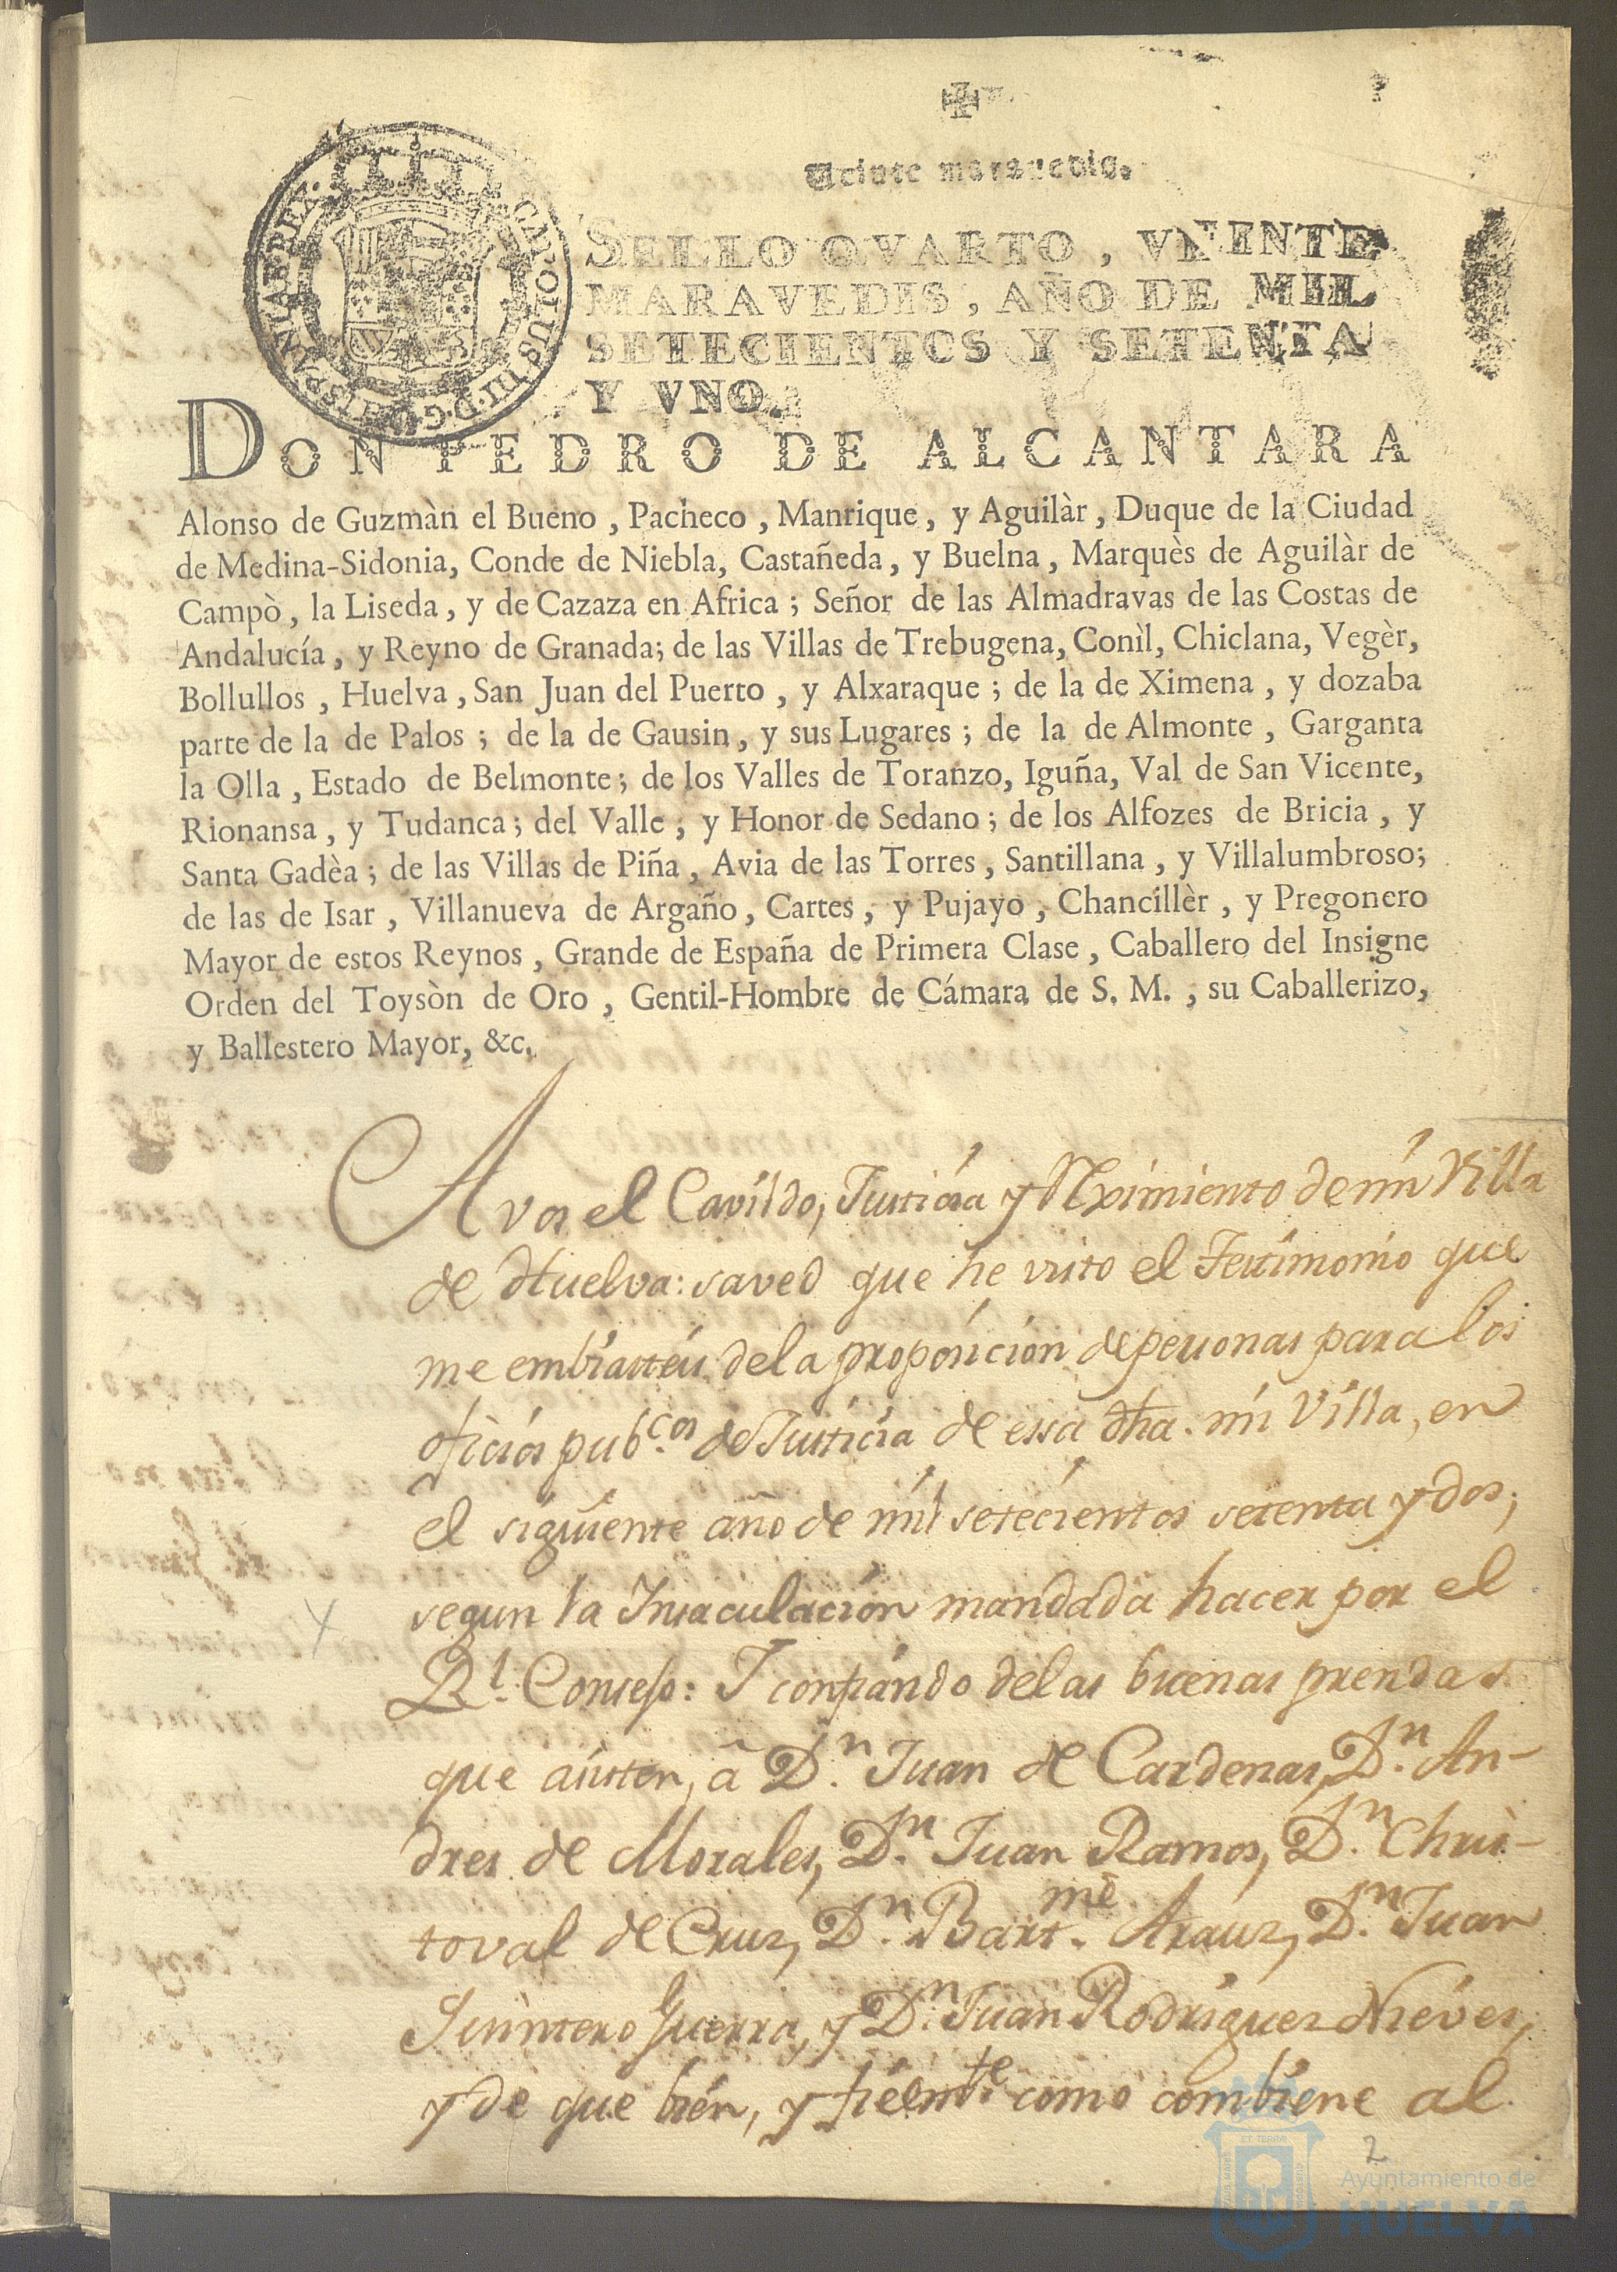 Veinte maravedis.
SELLO QVARTO, VEINTE
MARAVEDIS, AÑO DE MIL
SETECIENTOS Y SETENTA
Y VNO.
CAROLUS III. D. G. HISPANIAR. REX.
DON PEDRO DE ALCANTARA
Alonso de Guzmàn el Bueno, Pacheco, Manrique, y Aguilàr, Duque de la Ciudad
de Medina-Sidonia, Conde de Niebla, Castañeda, y Buelna, Marquès de Aguilàr de
Campò, la Liseda, y de Cazaza en Africa; Señor de las Almadravas de las Costas de
Andalucía, y Reyno de Granada; de las Villas de Trebugena, Conìl, Chiclana, Vegèr,
Bollullos, Huelva, San Juan del Puerto, y Alxaraque; de la de Ximena, y dozaba
parte de la de Palos; de la de Gausin, y sus Lugares; de la de Almonte, Garganta
la Olla, Estado de Belmonte; de los Valles de Toranzo, Iguña, Val de San Vicente,
Rionansa, y Tudanca; del Valle, y Honor de Sedano; de los Alfozes de Bricia, y
Santa Gadèa; de las Villas de Piña, Avia de las Torres, Santillana, y Villalumbroso;
de las de Isar, Villanueva de Argaño, Cartes, y Pujayo, Chancillèr, y Pregonero
Mayor de estos Reynos, Grande de España de Primera Clase, Caballero del Insigne
Orden del Toysòn de Oro, Gentil-Hombre de Cámara de S. M., su Caballerizo,
y Ballestero Mayor, &c.
A vos el Cavildo, Justicia y Reximiento de mi Villa
de Huelva: saved que he visto el Testimonio que
me embiasteis de la proposicion de personas para los
oficios pub.cos de Justicia de essa dha. mi Villa, en
el siguiente año de mil setecientos setenta y dos,
segun la Insaculación mandada hacer por el
Rl. Consejo: Y confiando de las buenas prendas
que asisten, à Dn. Juan de Cardenas, Dn. An-
dres de Morales, Dn. Juan Ramos, Dn. Chris-
toval de Cruz, Dn. Bartme. Arauz, Dn. Juan
Quintero Guerra, y Dn. Juan Rodriguez Nieves,
y de que bien, y fielmte. como combiene al
2
Ayuntamiento de
HUELVA